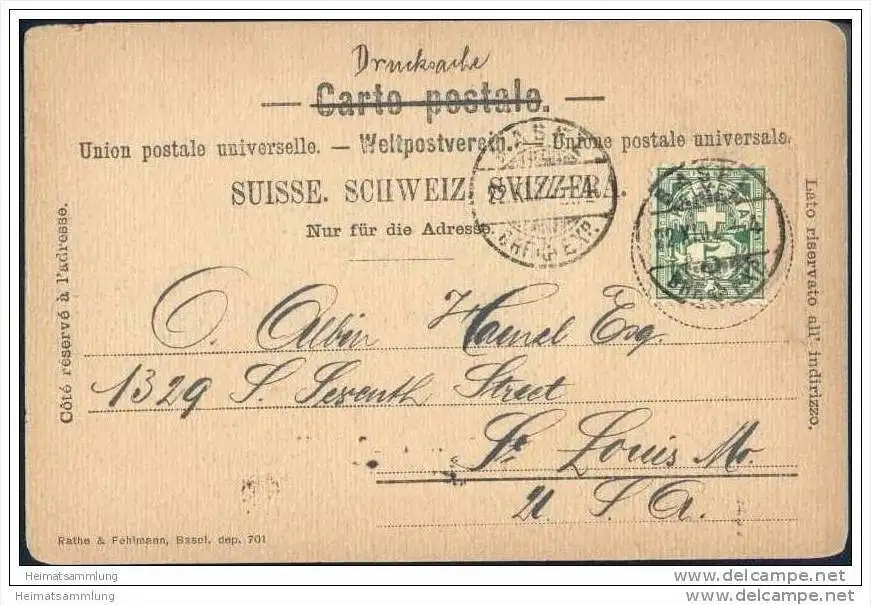 Drucksache
— Carte postale. —
Union postale universelle. — Weltpostverein. — Unione postale universale.
SUISSE. SCHWEIZ. SVIZZERA.
Nur für die Adresse.
Côté réservé à l'adresse.
Lato riservato all' indirizzo.
BASEL
BRIEF EXP.
BASEL
22 XII
O. Albin Haenel Esq.
1329 S. Seventh Street
St Louis Mo.
U. S. A.
Rathe & Fehlmann, Basel. dep. 701
Heimatsammlung
Heimatsammlung
www.delcampe.net
www.delcampe.net